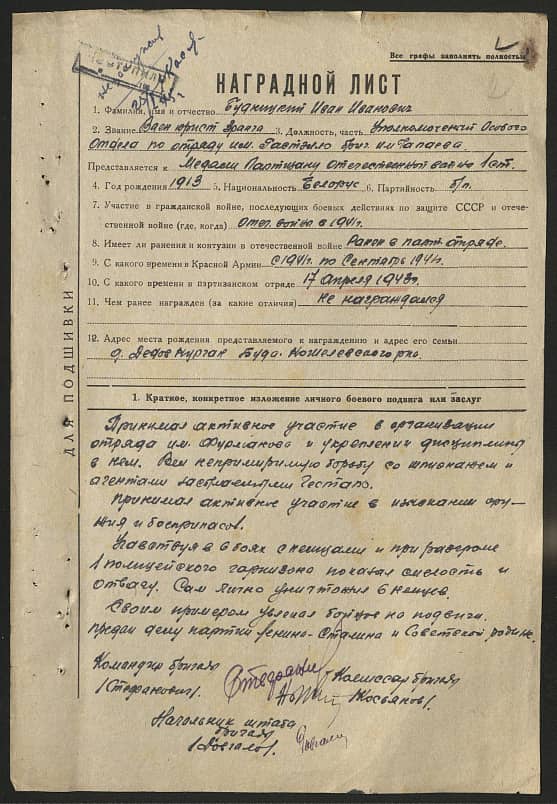 Все графы заполнять полностью
ПОСТУПИЛ
НАГРАДНОЙ ЛИСТ
1. Фамилия, имя и отчество Будницкий Иван Иванович
2. Звание Воен юрист 3 ранга 3. Должность, часть Уполномоченный Особого
Отдела по отряду им. бриг. им Чапаева
Представляется к Медали Партизану Отечественной войне 1 ст.
4. Год рождения 1913 5. Национальность Белорус 6. Партийность б/п.
7. Участие в гражданской войне, последующих боевых действиях по защите СССР и отече-
ственной войне (где, когда) Отеч. война в 1941г.
8. Имеет ли ранения и контузии в отечественной войне Ранен в парт. отряде.
9. С какого времени в Красной Армии с 1941г. по Сентябрь 1941г.
10. С какого времени в партизанском отряде 17 Апреля 1943г.
11. Чем ранее награжден (за какие отличия) Не награждался
12. Адрес места рождения представляемого к награждению и адрес его семьи
д. Дедов Курган Буда-Кошелевского р-на.
ДЛЯ ПОДШИВКИ
1. Краткое, конкретное изложение личного боевого подвига или заслуг
Принимал активное участие в организации
отряда им. Фурманова и укреплении дисциплины
в нем. Вел непримиримую борьбу со шпионажем и
агентами Гестапо.
Принимал активное участие в изыскании ору-
жия и боеприпасов.
Участвуя в 6 боях с немцами и при разгроме
1 полицейского гарнизона показал смелость и
отвагу. Сам лично уничтожил 6 немцев.
Своим примером увлекал бойцов на подвиги.
Предан делу партии Ленина-Сталина и Советской родине.
Командир бригады
/Стефанович/.
Комиссар бригады
/Косьянов/.
Начальник штаба
бригады
/Довгало/.